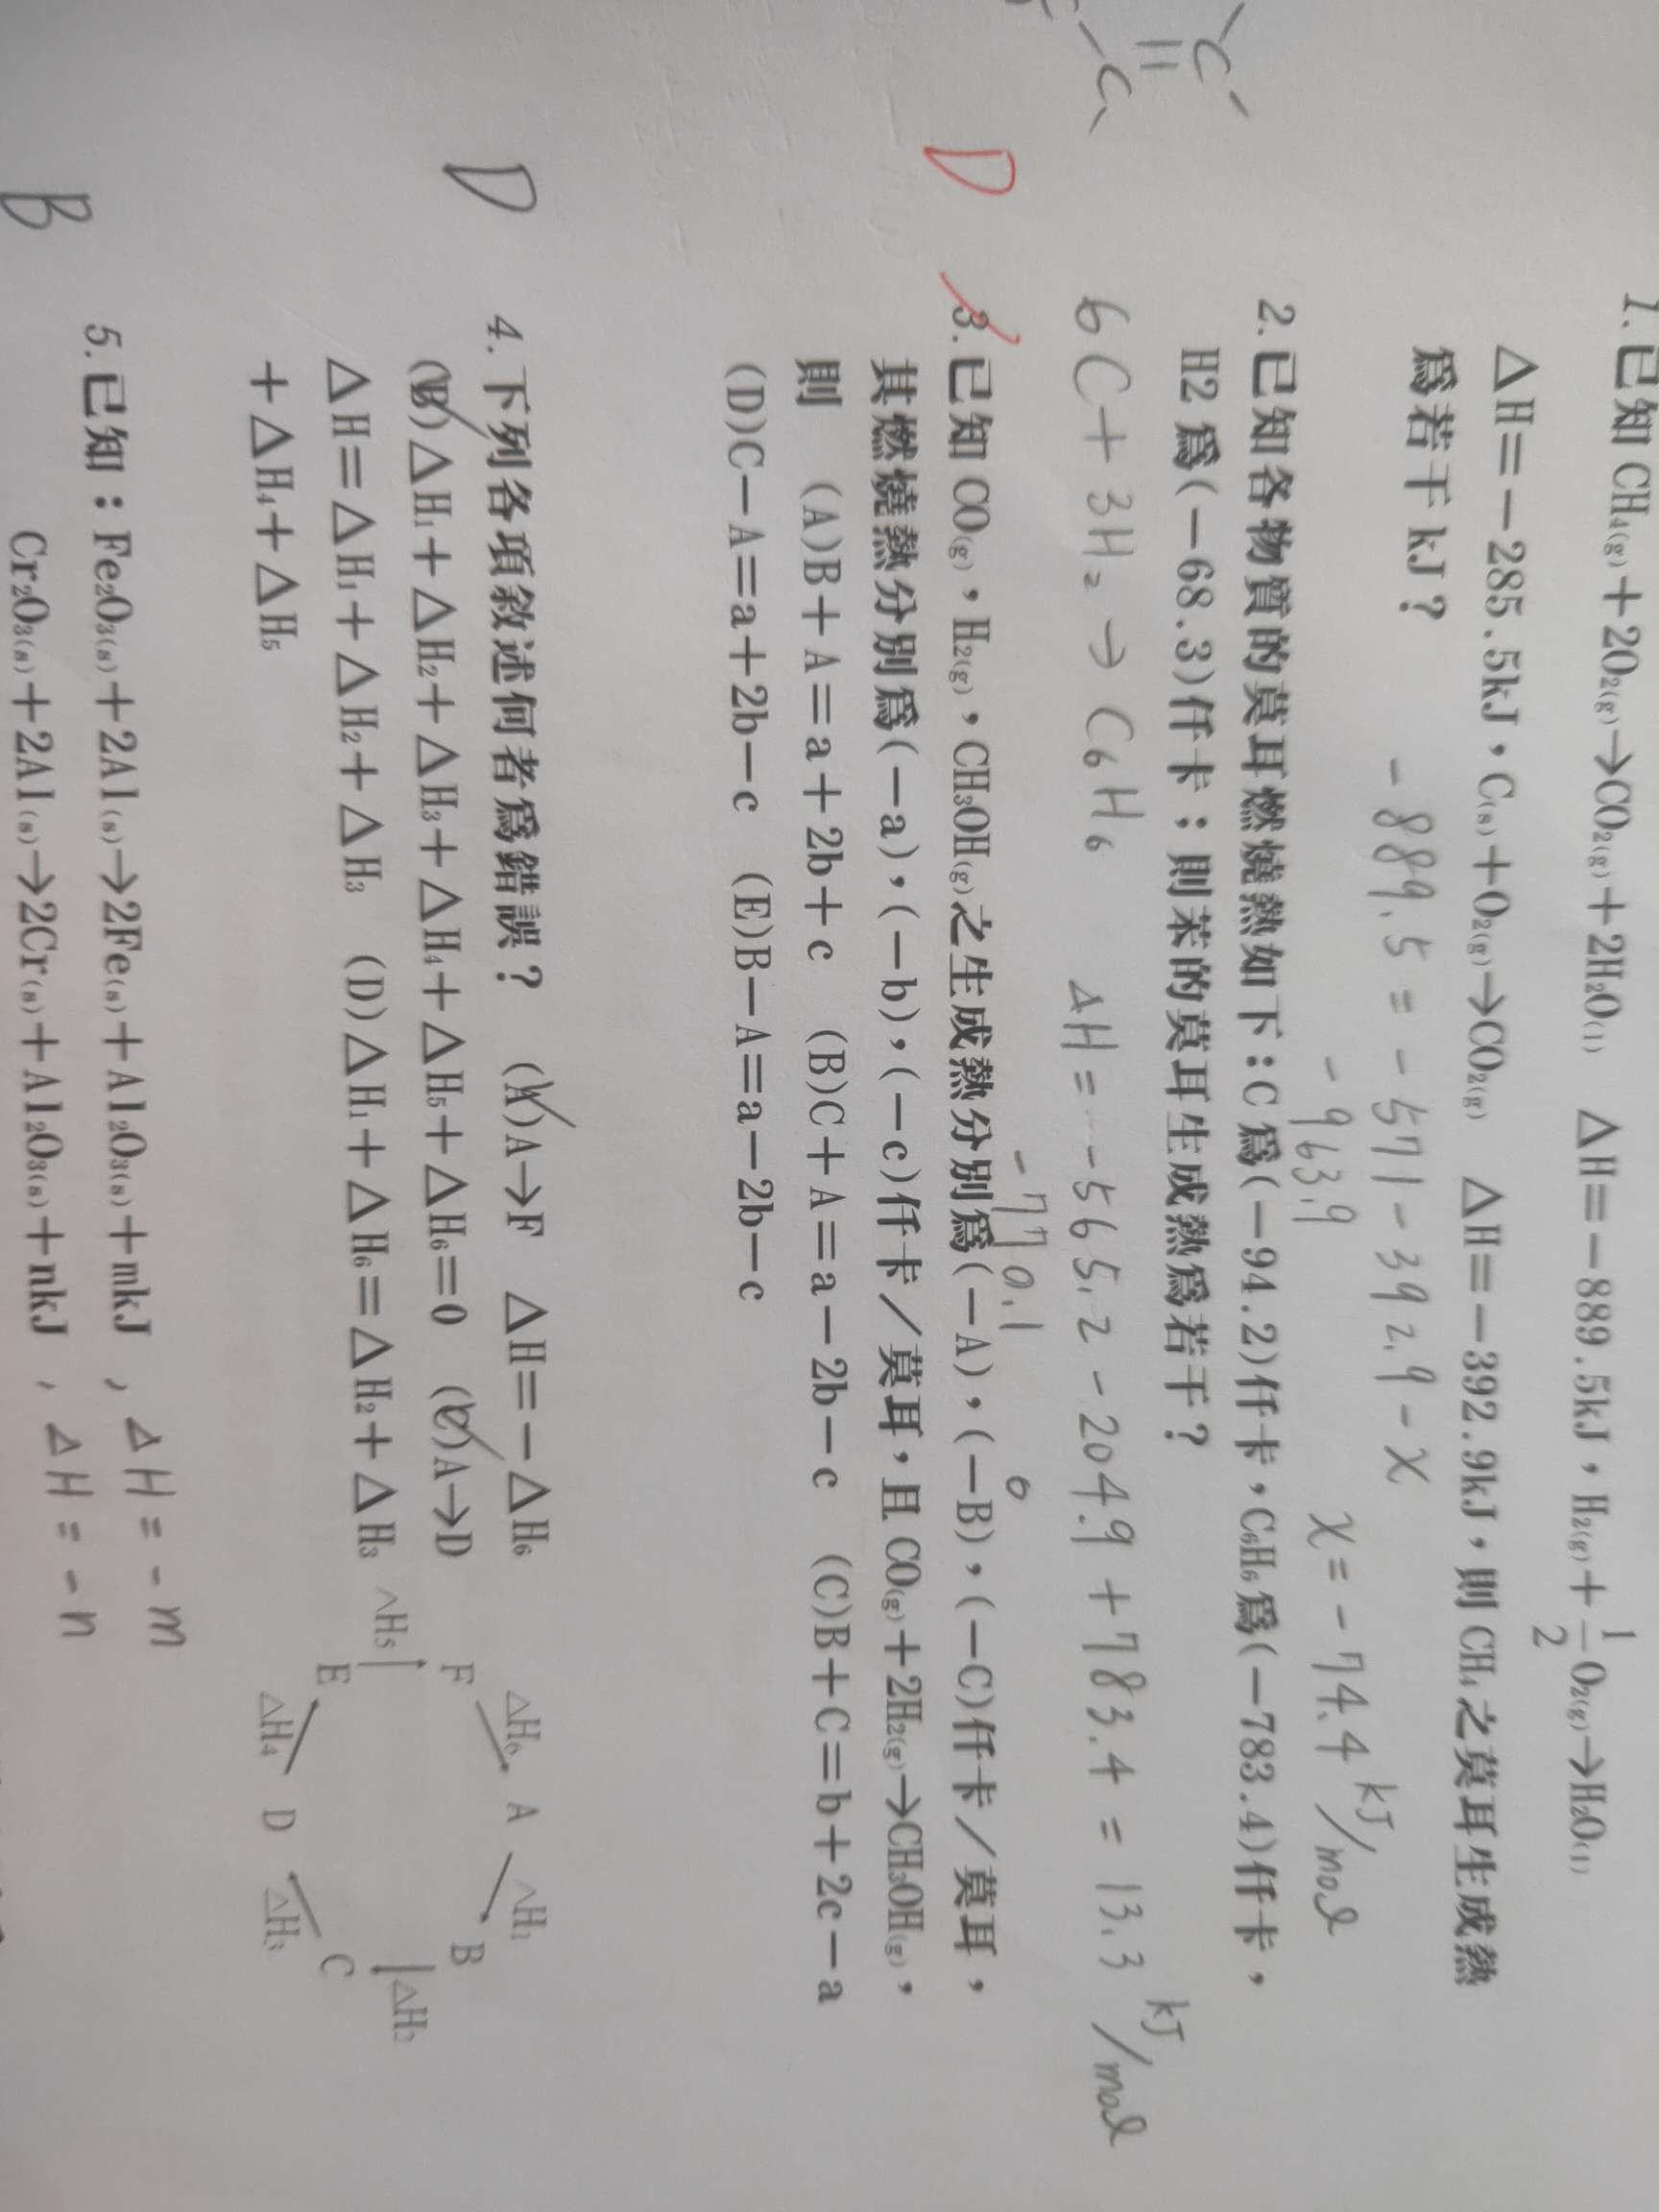 1.已知 CH₄(g)+2O₂(g)→CO₂(g)+2H₂O(l) △H=-889.5kJ,H₂(g)+1/2O₂(g)→H₂O(l)
△H=-285.5kJ,C(s)+O₂(g)→CO₂(g) △H=-392.9kJ,則 CH₄ 之莫耳生成熱
爲若干 kJ?
-889.5 = -571-392.9-x
x=-74.4 kJ/mol
-963.9
2.已知各物質的莫耳燃燒熱如下:C 爲(-94.2)仟卡,C₆H₆ 爲(-783.4)仟卡,
H2 爲(-68.3)仟卡;則苯的莫耳生成熱爲若干?
6C+3H₂→C₆H₆ ΔH=-565.2-204.9+783.4=13.3 kJ/mol
-770.1
D
3.已知 CO(g),H₂(g),CH₃OH(g)之生成熱分別爲(-A),(-B),(-C)仟卡/莫耳,
0
其燃燒熱分別爲(-a),(-b),(-c)仟卡/莫耳,且 CO(g)+2H₂(g)→CH₃OH(g),
則 (A)B+A=a+2b+c (B)C+A=a-2b-c (C)B+C=b+2c-a
(D)C-A=a+2b-c (E)B-A=a-2b-c
D
4.下列各項敘述何者爲錯誤? (A)A→F △H=-△H₆
(B)△H₁+△H₂+△H₃+△H₄+△H₅+△H₆=0 (C)A→D
△H=△H₁+△H₂+△H₃ (D)△H₁+△H₆=△H₂+△H₃
+△H₄+△H₅
△H₆ A △H₁
F B
△H₅ △H₂
E C
△H₄ D △H₃
B
5.已知:Fe₂O₃(s)+2Al(s)→2Fe(s)+Al₂O₃(s)+mkJ , ΔH=-m
Cr₂O₃(s)+2Al(s)→2Cr(s)+Al₂O₃(s)+nkJ , ΔH=-n